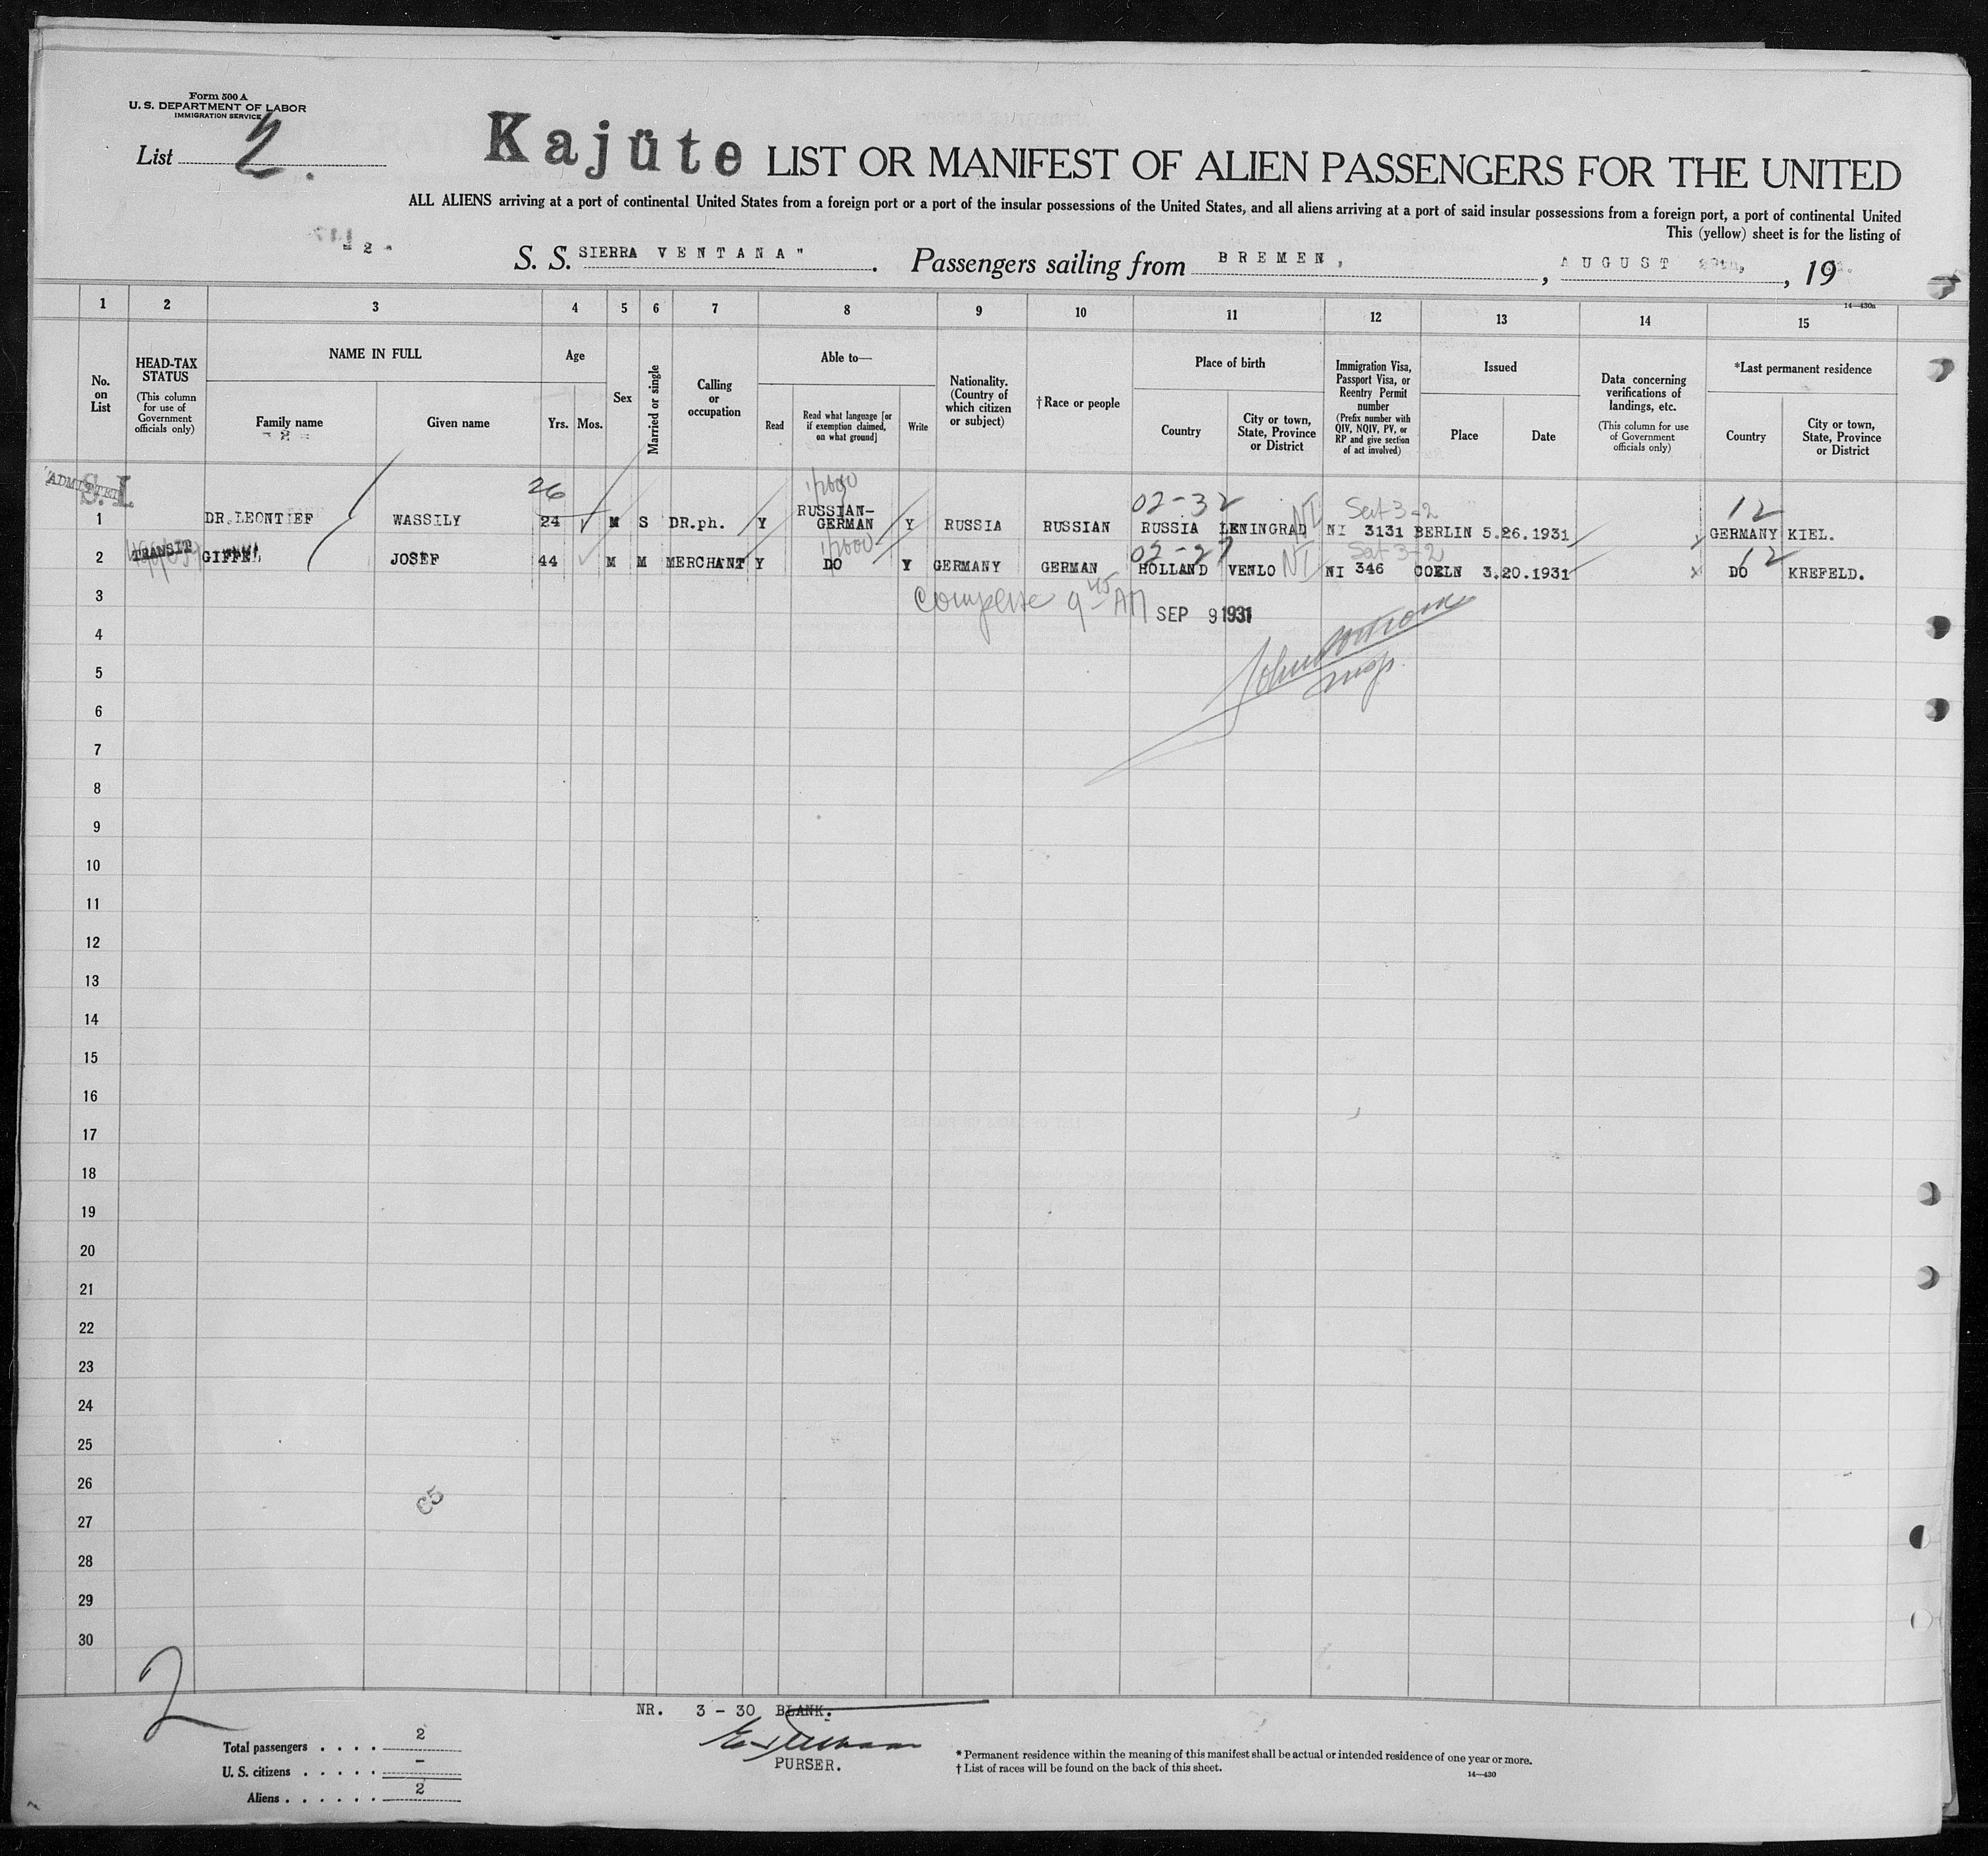 Form 500 A
U. S. DEPARTMENT OF LABOR
IMMIGRATION SERVICE
List 2.
Kajüte LIST OR MANIFEST OF ALIEN PASSENGERS FOR THE UNITED
ALL ALIENS arriving at a port of continental United States from a foreign port or a port of the insular possessions of the United States, and all aliens arriving at a port of said insular possessions from a foreign port, a port of continental United
This (yellow) sheet is for the listing of
- 2 -
S. S. SIERRA VENTANA" . Passengers sailing from BREMEN, , AUGUST 29th, , 19
14—430a
1 2 3 4 5 6 7 8 9 10 11 12 13 14 15
No. on List
HEAD-TAX STATUS
(This column for use of Government officials only)
NAME IN FULL
Family name
- 2 -
Given name
Age
Yrs. Mos.
Sex
Married or single
Calling or occupation
Able to—
Read
Read what language [or if exemption claimed, on what ground]
Write
Nationality. (Country of which citizen or subject)
† Race or people
Place of birth
Country
City or town, State, Province or District
Immigration Visa, Passport Visa, or Reentry Permit number
(Prefix number with QIV, NQIV, PV, or RP and give section of act involved)
Issued
Place
Date
Data concerning verifications of landings, etc.
(This column for use of Government officials only)
*Last permanent residence
Country
City or town, State, Province or District
ADMITTED S. I. 26 02-32 12
1 DR. LEONTIEF WASSILY 24 M S DR.ph. Y RUSSIAN-GERMAN Y RUSSIA RUSSIAN RUSSIA LENINGRAD NI NI 3131 BERLIN 5.26.1931 GERMANY KIEL.
02-27 12
2 TRANSIT GIFFEL JOSEF 44 M M MERCHANT Y DO Y GERMANY GERMAN HOLLAND VENLO NI NI 346 COELN 3.20.1931 x DO KREFELD.
3 Complete 9 45 AM SEP 9 1931
4
5
Insp.
6
7
8
9
10
11
12
13
14
15
16
17
18
19
20
21
22
23
24
25
26
65
27
28
29
30
2
NR. 3 - 30 BLANK.
PURSER.
Total passengers . . . . 2
U. S. citizens . . . . . -
Aliens . . . . . . 2
* Permanent residence within the meaning of this manifest shall be actual or intended residence of one year or more.
† List of races will be found on the back of this sheet.
14—430